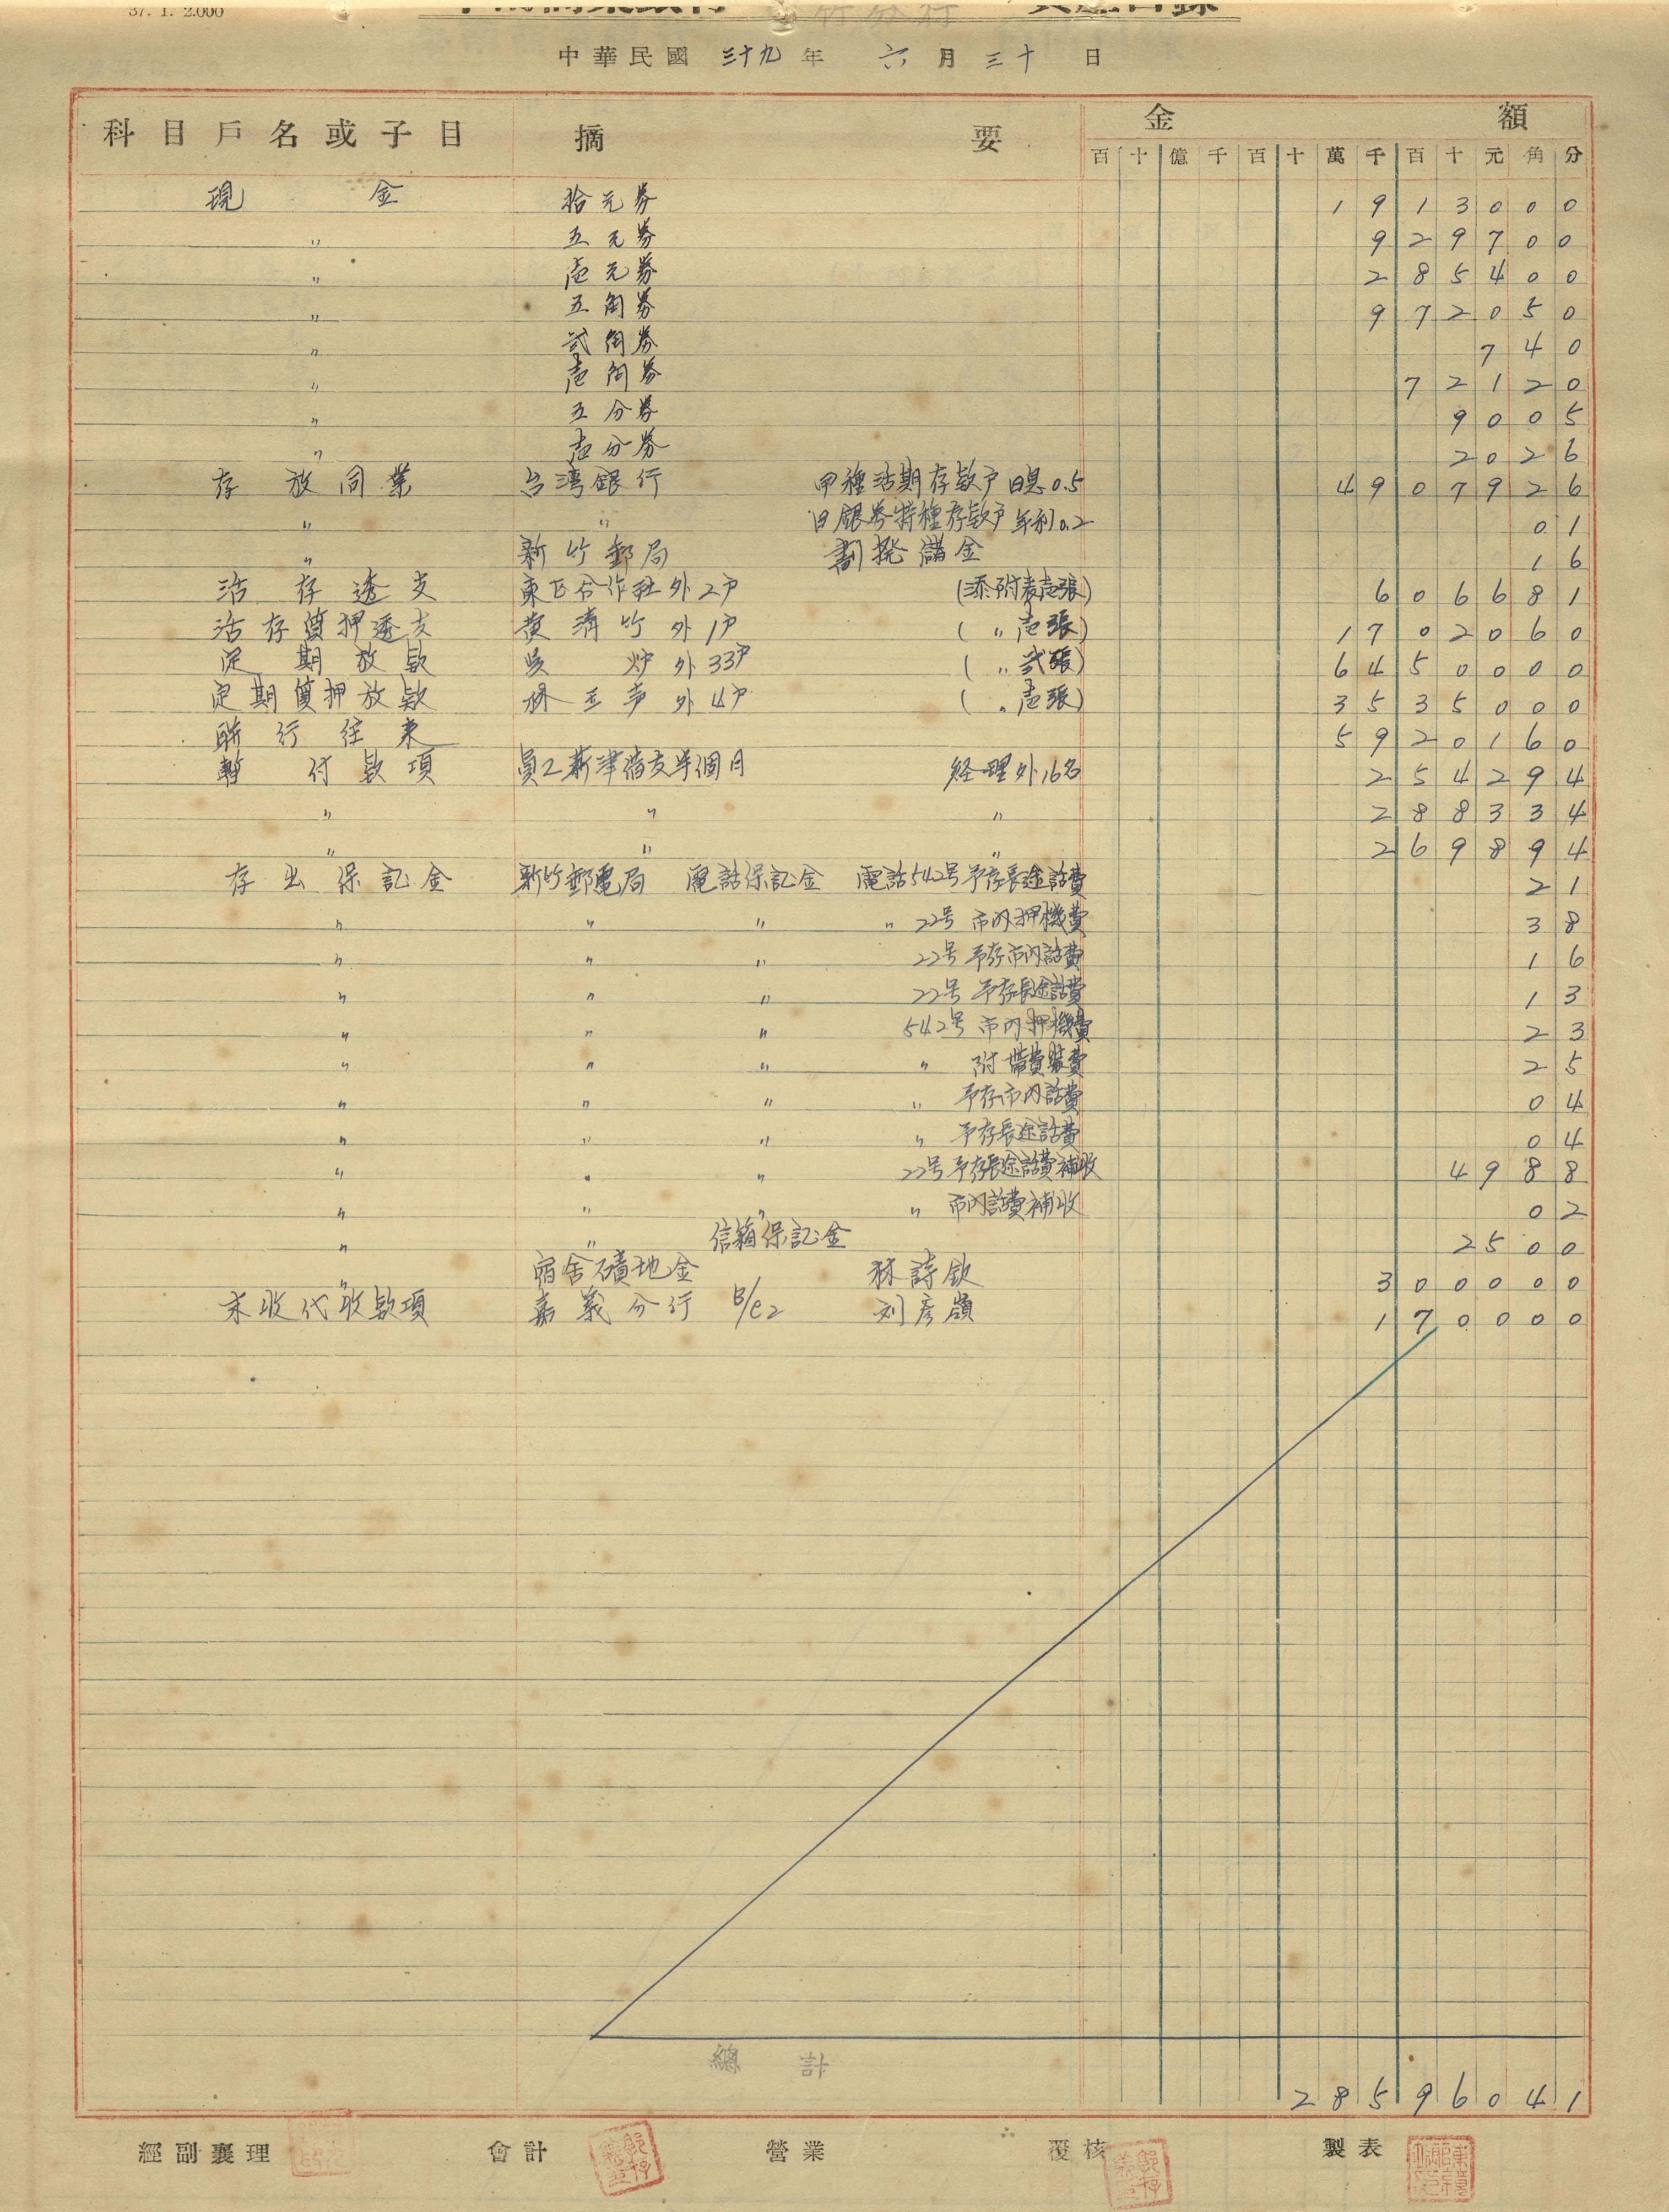 37. 1. 2.000
竹分行
中華民國 三十九 年 六 月 三十 日
科目戶名或子目 摘 要 金 額
百 十 億 千 百 十 萬 千 百 十 元 角 分
現 金 拾元券 1 9 1 3 0 0 0
〃 五元券 9 2 9 7 0 0
〃 壱元券 2 8 5 4 0 0
〃 五角券 9 7 2 0 5 0
〃 弐角券 7 4 0
〃 壱角券 7 2 1 2 0
〃 五分券 9 0 0 5
〃 壱分券 2 0 2 6
存放同業 台湾銀行 甲種活期存款户 日息0.5 4 9 0 7 9 2 6
〃 〃 旧銀券特種存款户 年利0.2 0 1
〃 新竹郵局 劃撥儲金 1 6
活存透支 東区合作社外2户 (添附表壱張) 6 0 6 6 8 1
活存質押透支 黄濟竹外1户 ( 〃 壱張) 1 7 0 2 0 6 0
定期放款 吳 炉 外33户 ( 〃 弐張) 6 4 5 0 0 0 0
定期質押放款 林玉 外4户 ( 〃 壱張) 3 5 3 5 0 0 0
聯行往来 5 9 2 0 1 6 0
暫付款項 員工薪津借支半個月 経理外16名 2 5 4 2 9 4
〃 〃 〃 2 8 8 3 3 4
〃 〃 〃 2 6 9 8 9 4
存出保証金 新竹郵電局 電話保証金 電話542号予存長途話費 2 1
〃 〃 〃 〃 22号 市内押機費 3 8
〃 〃 〃 22号 予存市内話費 1 6
〃 〃 〃 22号 予存長途話費 1 3
〃 〃 〃 542号 市内押機費 2 3
〃 〃 〃 〃 附帯費装費 2 5
〃 〃 〃 〃 予存市内話費 0 4
〃 〃 〃 〃 予存長途話費 0 4
〃 〃 〃 22号予存長途話費補收 4 9 8 8
〃 〃 〃 〃 市内話費補收 0 2
〃 〃 信箱保証金 2 5 0 0
〃 宿舍磧地金 林詩欽 3 0 0 0 0 0
未收代收款項 嘉義分行 B/C2 刘彦嶺 1 7 0 0 0 0
總計 2 8 5 9 6 0 4 1
經副襄理 會計 營業 覆核 製表